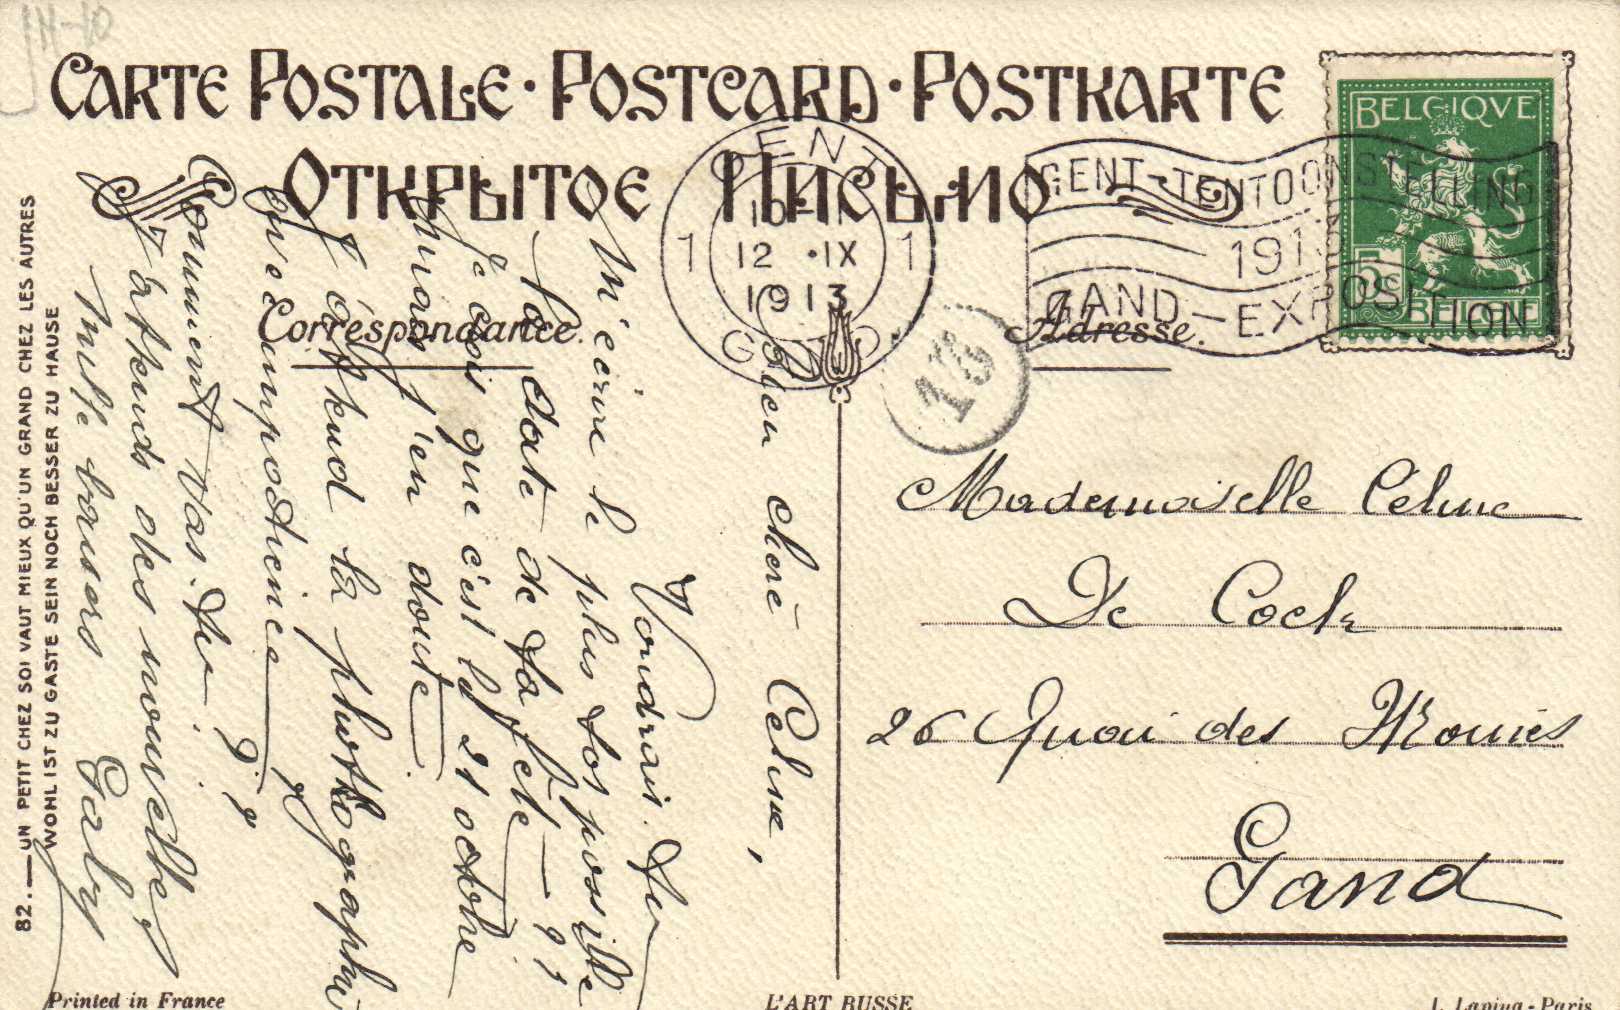 14-10
CARTE POSTALE · POSTCARD · POSTKARTE
ОТКРЫТОЕ ПИСЬМО
Correspondance.
Adresse.
BELGIQVE
5c
BELGIE
GENT
1 1
12 · IX
1913
GAND
GENT-TENTOONSTELLING
1913
GAND-EXPOSITION
18
Bien chère Celine,
Voudrais-tu
m'écrire le plus tôt possible
la date de ta fête - ??
Je crois que c'est le 21 octobre
mais j'en doute.
J'attend la photographie
avec impatience
Comment vas-tu? ??
J'attends des nouvelles
Mille baisers Gaby
Mademoiselle Céline
De Cock
26 Quai des Moines
Gand
82. — UN PETIT CHEZ SOI VAUT MIEUX QU'UN GRAND CHEZ LES AUTRES
WOHL IST ZU GASTE SEIN NOCH BESSER ZU HAUSE
Printed in France
L'ART RUSSE
I. Lapina - Paris